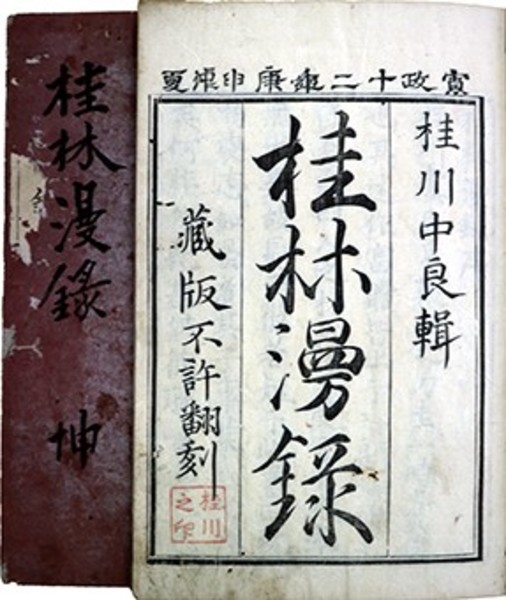 寛政十二年庚申夏
桂川中良輯
桂林漫録
藏版不許翻刻
桂川
之印
桂林漫録 坤